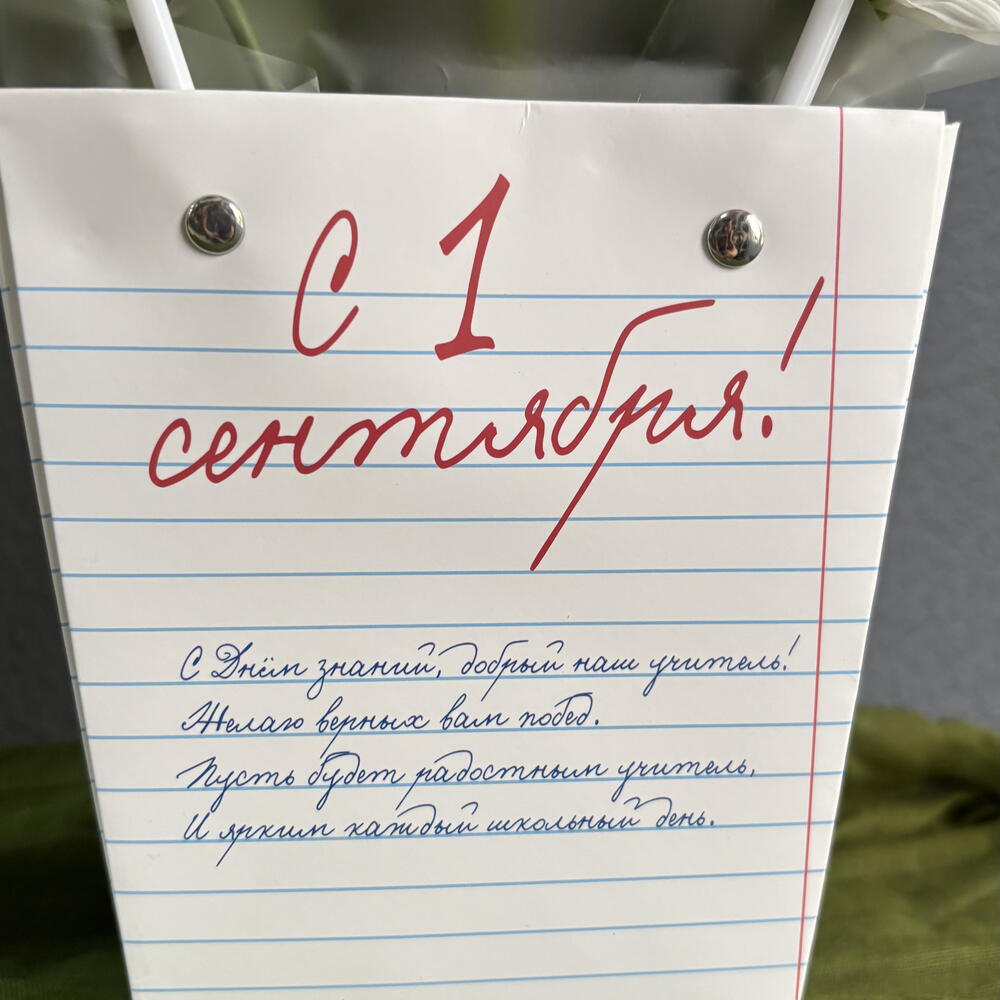 С 1
сентября!
С Днём знаний, добрый наш учитель!
Желаю верных вам побед.
Пусть будет радостным учитель,
И ярким каждый школьный день.